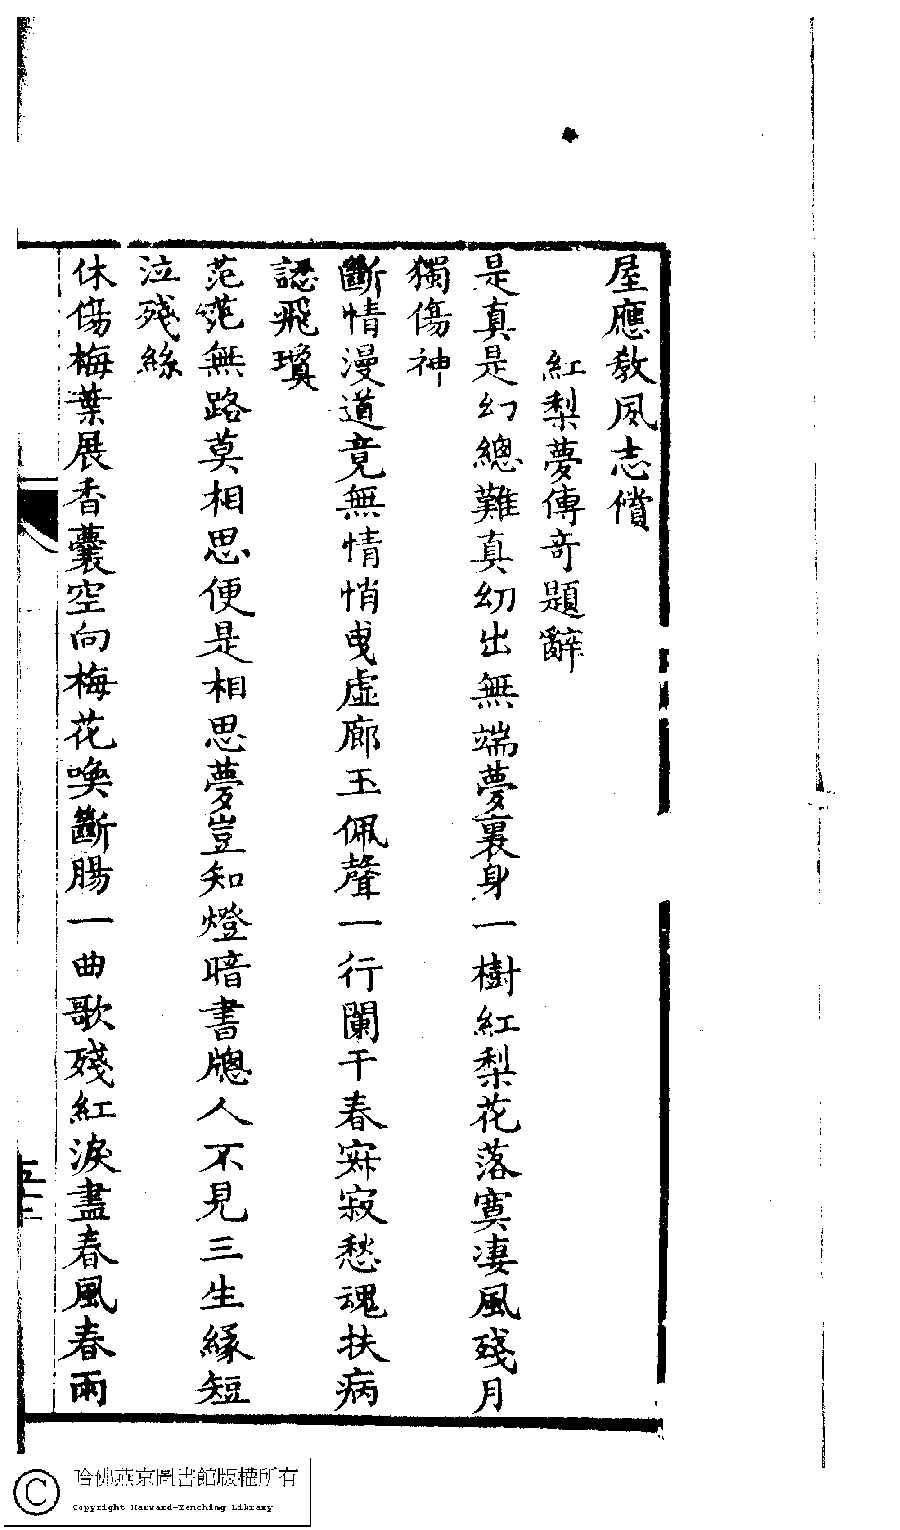 屋應教夙志償
紅梨夢傳奇題辭
是真是幻總難真幻出無端夢裏身一樹紅梨花落寞凄風殘月
獨傷神
斷情漫道竟無情悄曳虛廊玉佩聲一行闌干春寂寂愁魂扶病
認飛瓊
茫茫無路莫相思便是相思夢豈知燈暗書牕人不見三生緣短
泣殘絲
休傷梅葉展香囊空向梅花喚斷腸一曲歌殘紅淚盡春風春雨
五十二
哈佛燕京圖書館版權所有
Copyright Harvard-Yenching Library